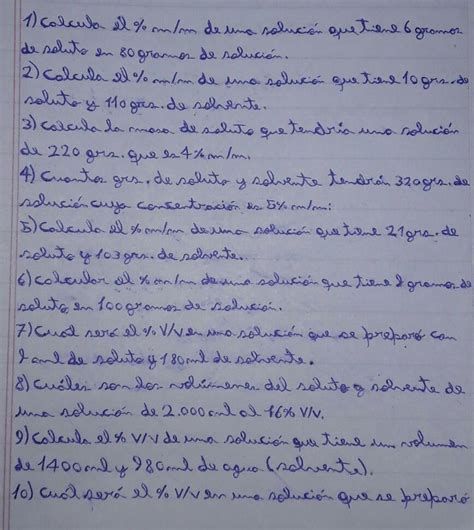 1) Calcula el % m/m de una solución que tiene 6 gramos
de soluto en 80 gramos de solución.
2) Calcula el % m/m de una solución que tiene 10 grs. de
soluto y 110 grs. de solvente.
3) Calcula la masa de soluto que tendría una solución
de 220 grs. que es 4% m/m.
4) Cuantos grs. de soluto y solvente tendrán 320 grs. de
solución cuya concentración es 5% m/m:
5) Calcula el % m/m de una solución que tiene 21 grs. de
soluto y 103 grs. de solvente.
6) Calcular el % m/m de una solución que tiene gramos de
soluto en 100 gramos de solución.
7) Cuál será el % V/V en una solución que se preparó con
ml de soluto y 180 ml de solvente.
8) Cuáles son los volúmenes del soluto y solvente de
una solución de 2.000 ml al 16% V/V.
9) Calcula el % V/V de una solución que tiene un volumen
de 1400 ml y 980 ml de agua (solvente).
10) Cuál será el % V/V en una solución que se preparó